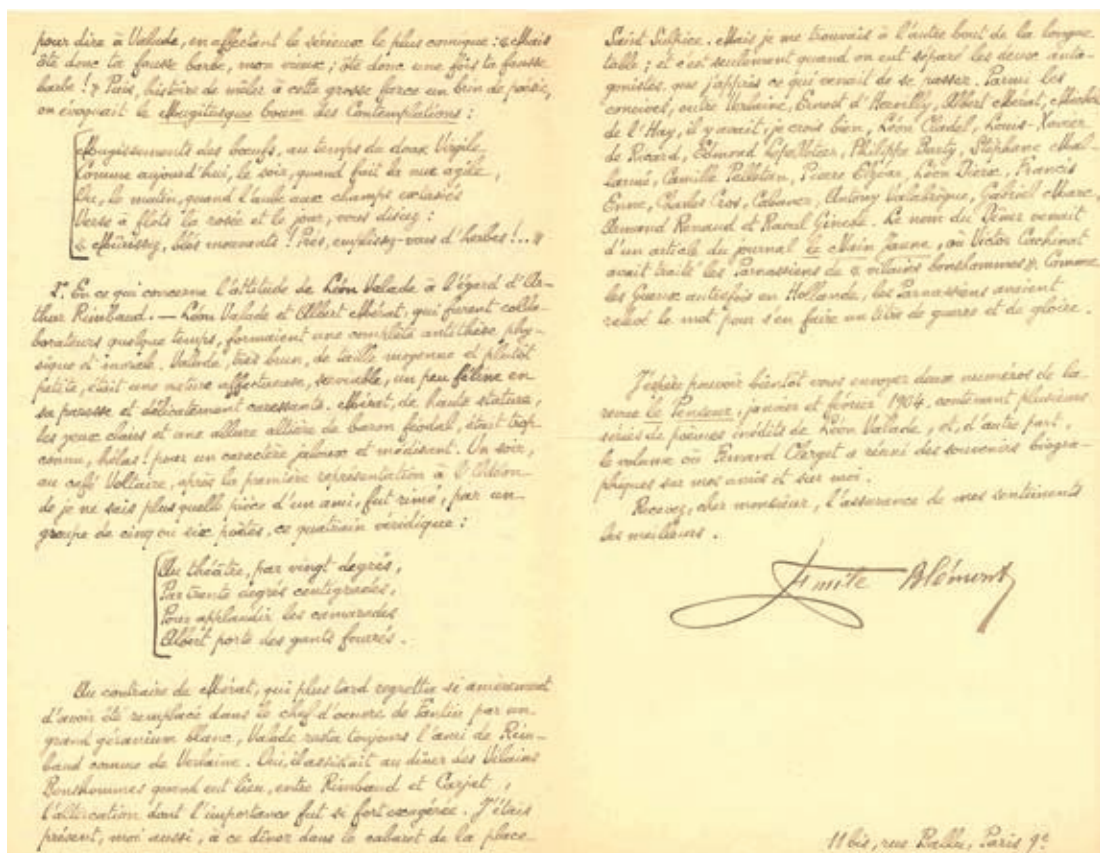 pour dire à Valade, en affectant le sérieux le plus comique : « Mais
ôte donc ta fausse barbe, mon vieux ; ôte donc une fois ta fausse
barbe ! » Puis, histoire de mêler à cette grosse farce un brin de poésie,
on évoquait le Mugitusque boum des Contemplations :
Mugissements des bœufs, au temps du doux Virgile,
Comme aujourd'hui, le soir, quand fuit la nue agile,
Ou, le matin, quand l'aube aux champs extasiés
Verse à flots la rosée et le jour, vous disiez :
« Mûrissez, blés mouvants ! Prés, emplissez-vous d'herbes !.. »
2°. En ce qui concerne l'attitude de Léon Valade à l'égard d'Ar-
thur Rimbaud. — Léon Valade et Albert Mérat, qui furent colla-
borateurs quelque temps, formaient une complète antithèse phy-
sique et morale. Valade, très brun, de taille moyenne et plutôt
petite, était une nature affectueuse, serviable, un peu féline en
sa paresse et délicatement caressante. Mérat, de haute stature,
les yeux clairs et une allure altière de baron féodal, était trop
connu, hélas ! pour un caractère jaloux et médisant. Un soir,
au café Voltaire, après la première représentation à l'Odéon
de je ne sais plus quelle pièce d'un ami, fut rimé, par un
groupe de cinq ou six poètes, ce quatrain véridique :
Au théâtre, par vingt degrés,
Par trente degrés centigrades,
Pour applaudir les camarades
Albert porte des gants fourrés.
Au contraire de Mérat, qui plus tard regretta si amèrement
d'avoir été remplacé dans le chef-d'œuvre de Fantin par un
grand géranium blanc, Valade resta toujours l'ami de Rim-
baud comme de Verlaine. Oui, il assistait au dîner des Vilains
Bonshommes quand eut lieu, entre Rimbaud et Carjat,
l'altercation dont l'importance fut si fort exagérée. J'étais
présent, moi aussi, à ce dîner dans le cabaret de la place
Saint Sulpice. Mais je me trouvais à l'autre bout de la longue
table ; et c'est seulement quand on eut séparé les deux anta-
gonistes, que j'appris ce qui venait de se passer. Parmi les
convives, outre Verlaine, Ernest d'Hervilly, Albert Mérat, Michel
de l'Hay, il y avait, je crois bien, Léon Cladel, Louis-Xavier
de Ricard, Edmond Lepelletier, Philippe Burty, Stéphane Mal-
larmé, Camille Pelletan, Pierre Elzéar, Léon Dierx, Francis
Enne, Charles Cros, Cabaner, Antony Valabrègue, Gabriel Marc,
Armand Renaud et Raoul Gineste. Le nom du Dîner venait
d'un article du journal le Nain Jaune, où Victor Cochinat
avait traité les Parnassiens de « vilains bonshommes ». Comme
les Gueux autrefois en Hollande, les Parnassiens avaient
relevé le mot pour s'en faire un titre de guerre et de gloire.
J'espère pouvoir bientôt vous envoyer deux numéros de la
revue le Penseur, janvier et février 1904, contenant plusieurs
séries de poèmes inédits de Léon Valade, et, d'autre part,
le volume où Fernand Clerget a réuni des souvenirs biogra-
phiques sur mes amis et sur moi.
Recevez, cher monsieur, l'assurance de mes sentiments
les meilleurs.
Emile Blémont
11 bis, rue Ballu, Paris 9e